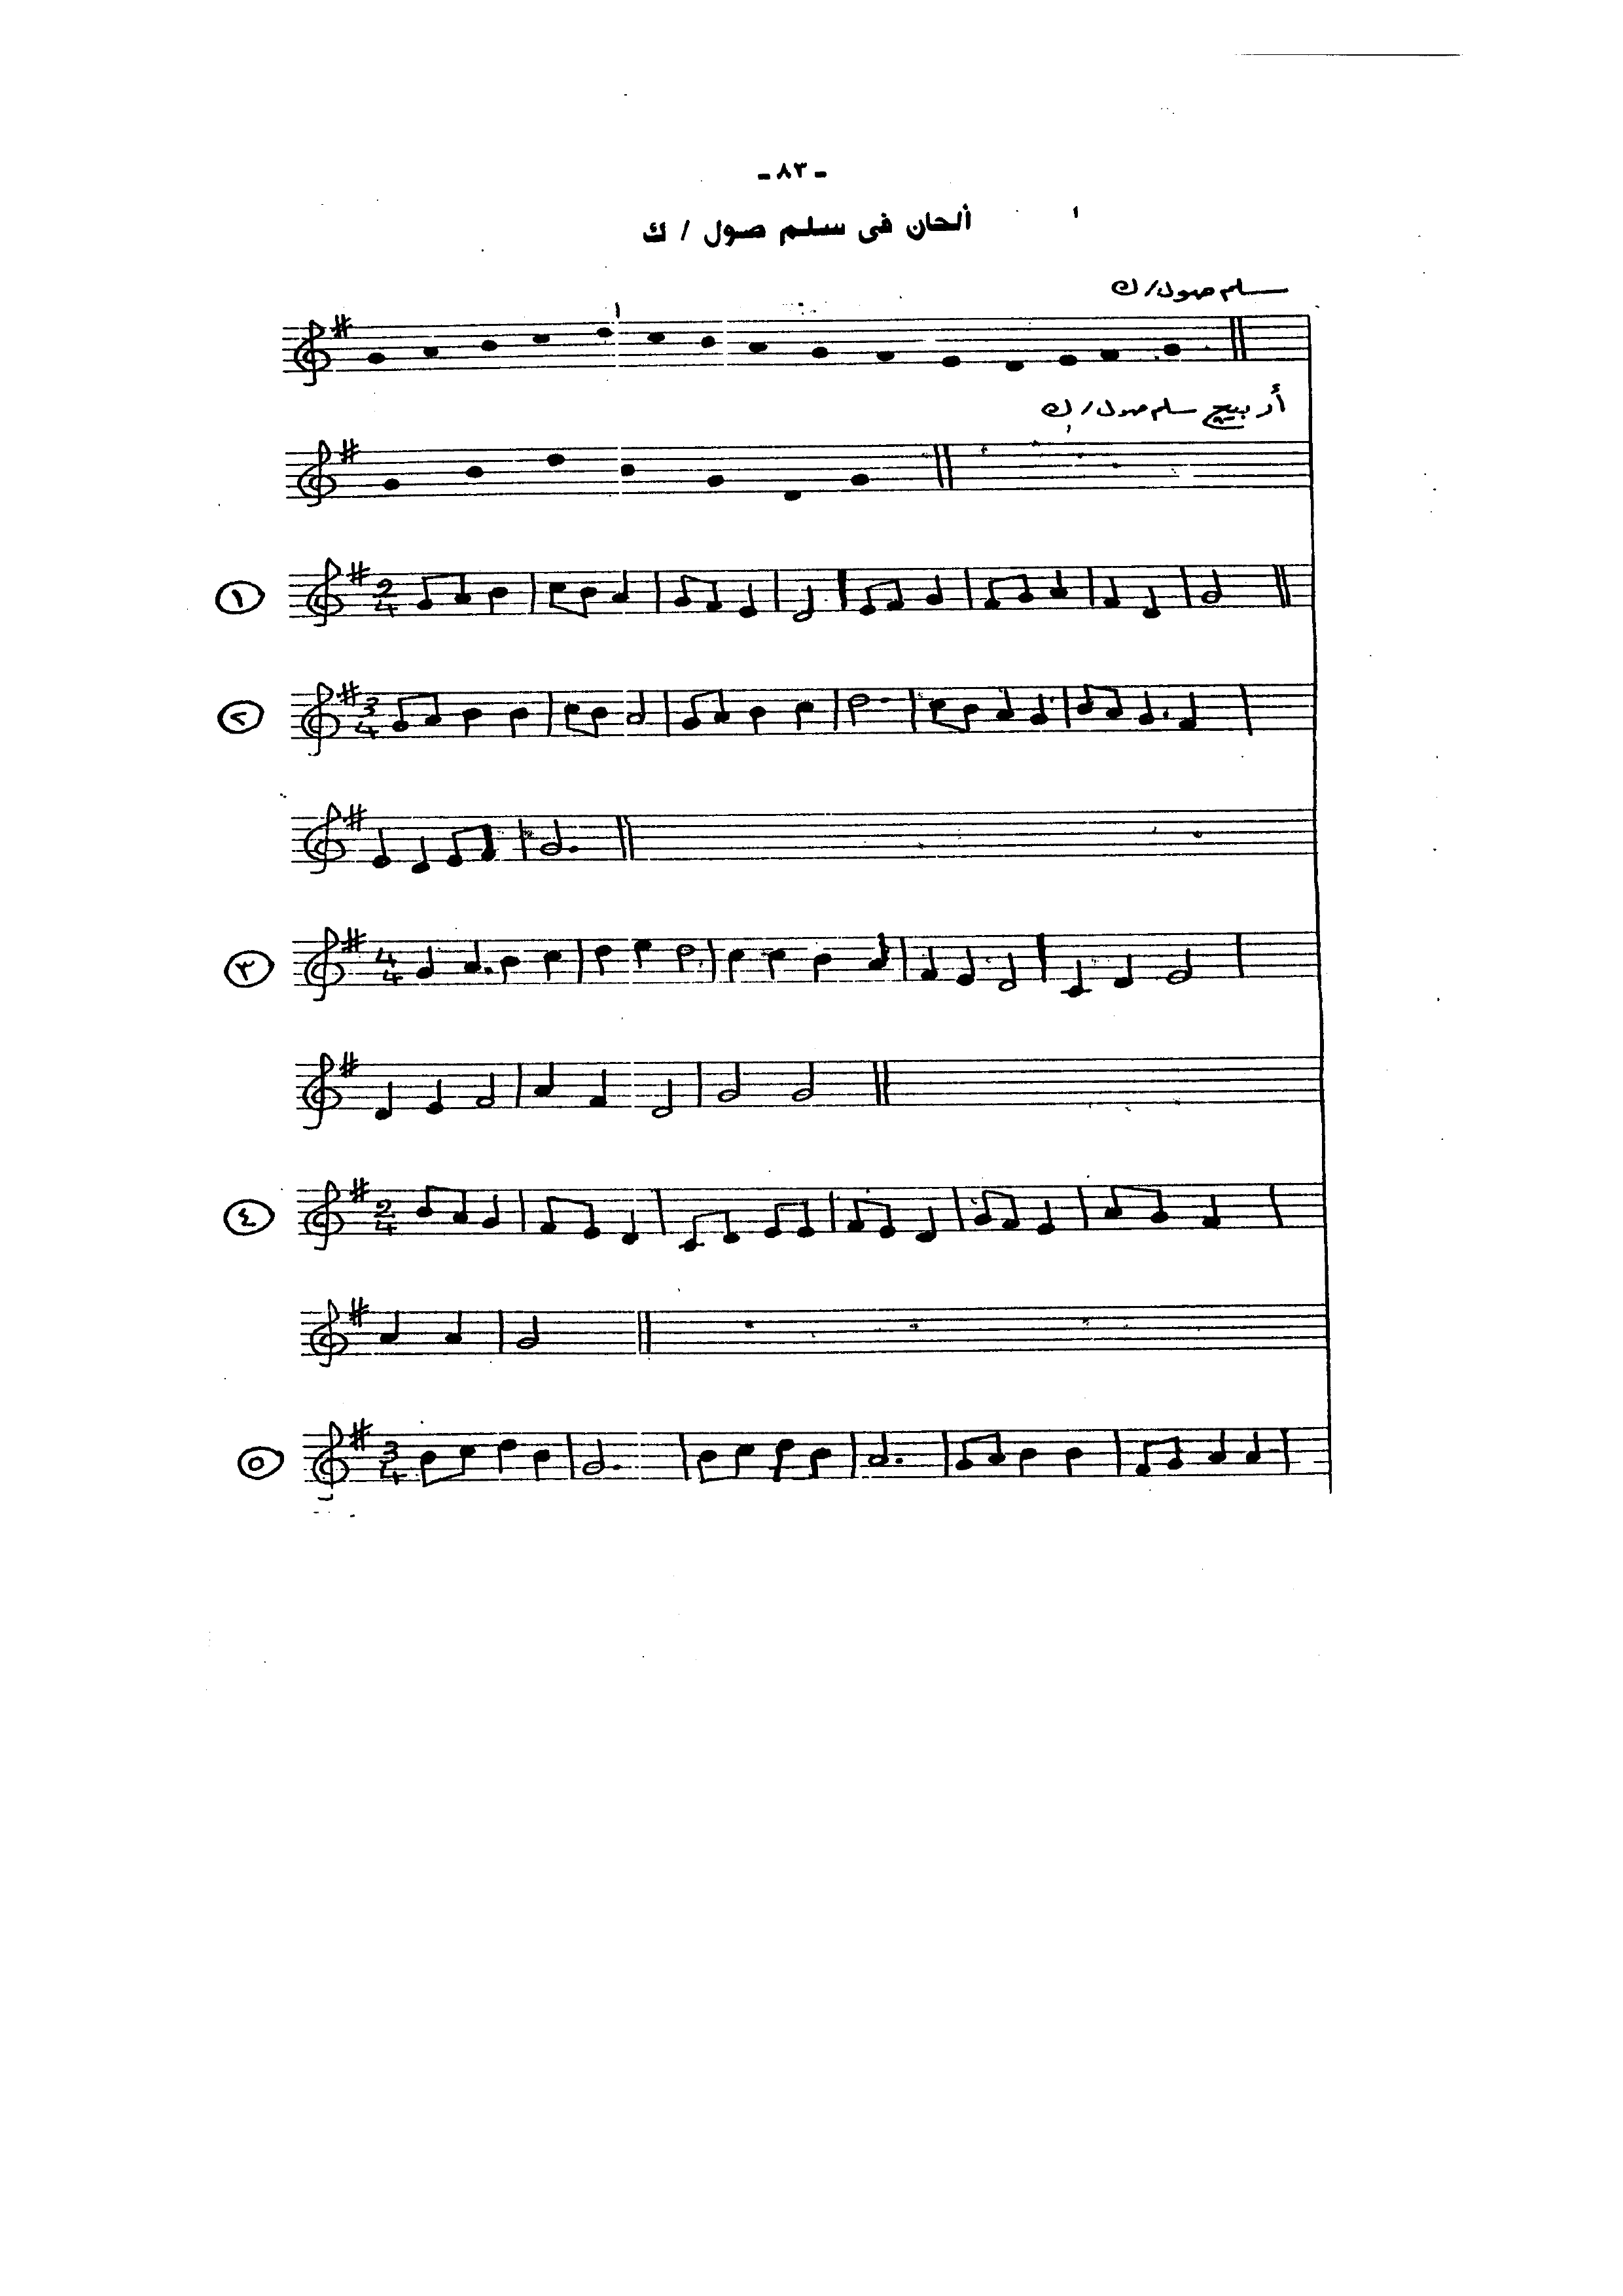 - ٨٣ -
ألحان فى سلم صول / ك
سلم صول/ك
أربيج سلم صول/ك
١ 2 4
٢ 3 4
٣ 4 4
٤ 2 4
٥ 3 4